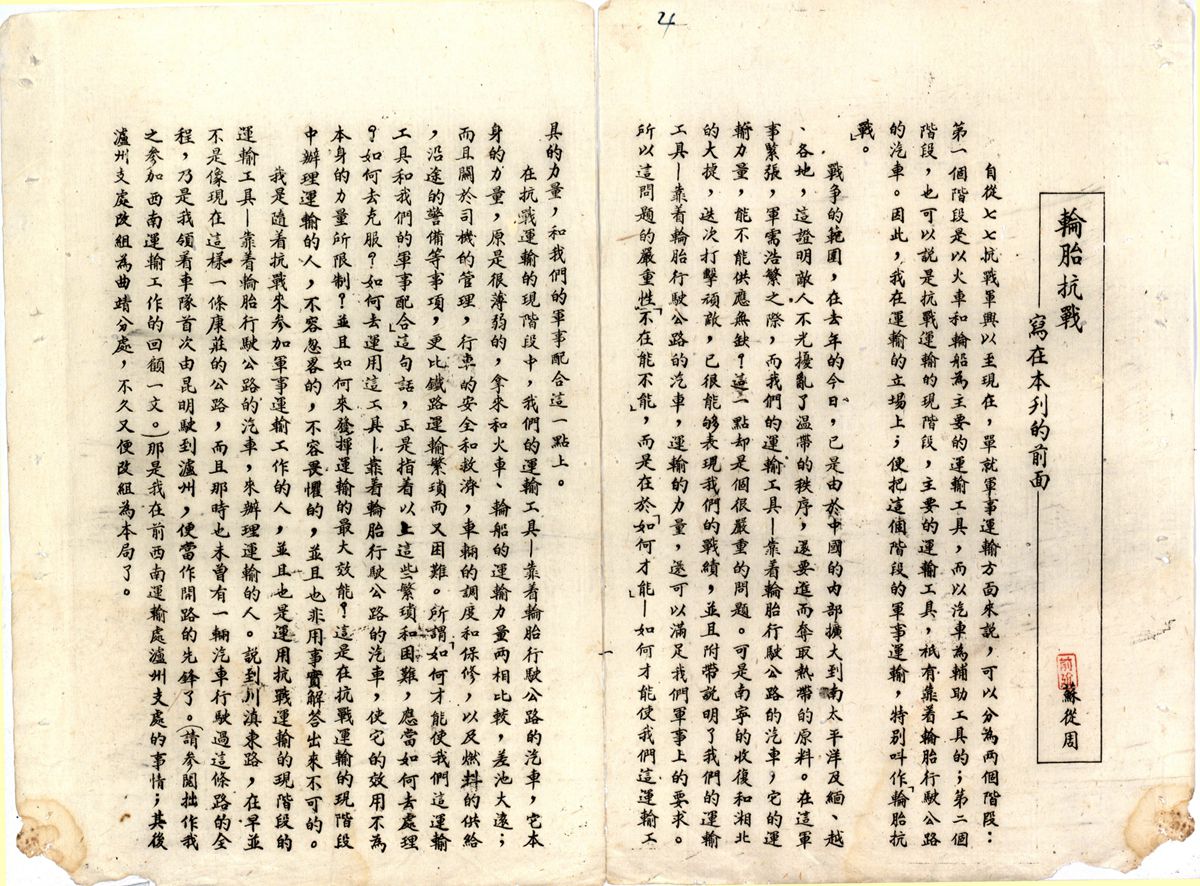 4
輪胎抗戰
寫在本刋的前面
蘇從周
自從七七抗戰軍興以至現在，單就軍事運輸方面來說，可以分為兩個階段：
第一個階段是以火車和輪船為主要的運輸工具，而以汽車為輔助工具的；第二個
階段，也可以說是抗戰運輸的現階段，主要的運輸工具，祇有靠着輪胎行駛公路
的汽車。因此，我在運輸的立場上；便把這個階段的軍事運輸，特別叫作「輪胎抗
戰」。
戰爭的範圍，在去年的今日，已是由於中國的內部擴大到南太平洋及緬、越
、各地，這證明敵人不光擾亂了溫帶的秩序，還要進而奪取熱帶的原料。在這軍
事緊張，軍需浩繁之際，而我們的運輸工具—靠着輪胎行駛公路的汽車；它的運
輸力量，能不能供應無缺？這一點却是個很嚴重的問題。可是南寧的收復和湘北
的大捷，迭次打擊頑敵，已很能够表現我們的戰績，並且附帶說明了我們的運輸
工具—靠着輪胎行駛公路的汽車，運輸的力量，還可以滿足我們軍事上的要求。
所以這問題的嚴重性，不在「能不能」，而是在於「如何才能」—如何才能使我們這運輸工
具的力量，和我們的軍事配合這一點上。
在抗戰運輸的現階段中，我們的運輸工具—靠着輪胎行駛公路的汽車，它本
身的力量，原是很薄弱的，拿來和火車、輪船的運輸力量兩相比較，差池大遠；
而且關於司機的管理，行車的安全和救濟，車輛的調度和保修，以及燃料的供給
，沿途的警備等事項，更比鐵路運輸繁瑣而又困難。所謂「如何才能使我們這運輸
工具和我們的軍事配合」這句話，正是指着以上這些繁瑣和困難，應當如何去處理
？如何去克服？如何去運用這工具—靠着輪胎行駛公路的汽車，使它的效用不為
本身的力量所限制？並且如何來發揮運輸的最大效能？這是在抗戰運輸的現階段
中辦理運輸的人，不容忽畧的，不容畏懼的，並且也非用事實解答出來不可的。
我是隨着抗戰來參加軍事運輸工作的人，並且也是運用抗戰運輸的現階段的
運輸工具—靠着輪胎行駛公路的汽車，來辦理運輸的人。說到川滇東路，在早並
不是像現在這樣一條康莊的公路，而且那時也未曾有一輛汽車行駛過這條路的全
程，乃是我領着車隊首次由昆明駛到瀘州，便當作開路的先鋒了。（請參閱拙作我
之參加西南運輸工作的回顧一文。）那是我在前西南運輸處瀘州支處的事情；其後
瀘州支處改組為曲靖分處，不久又便改組為本局了。